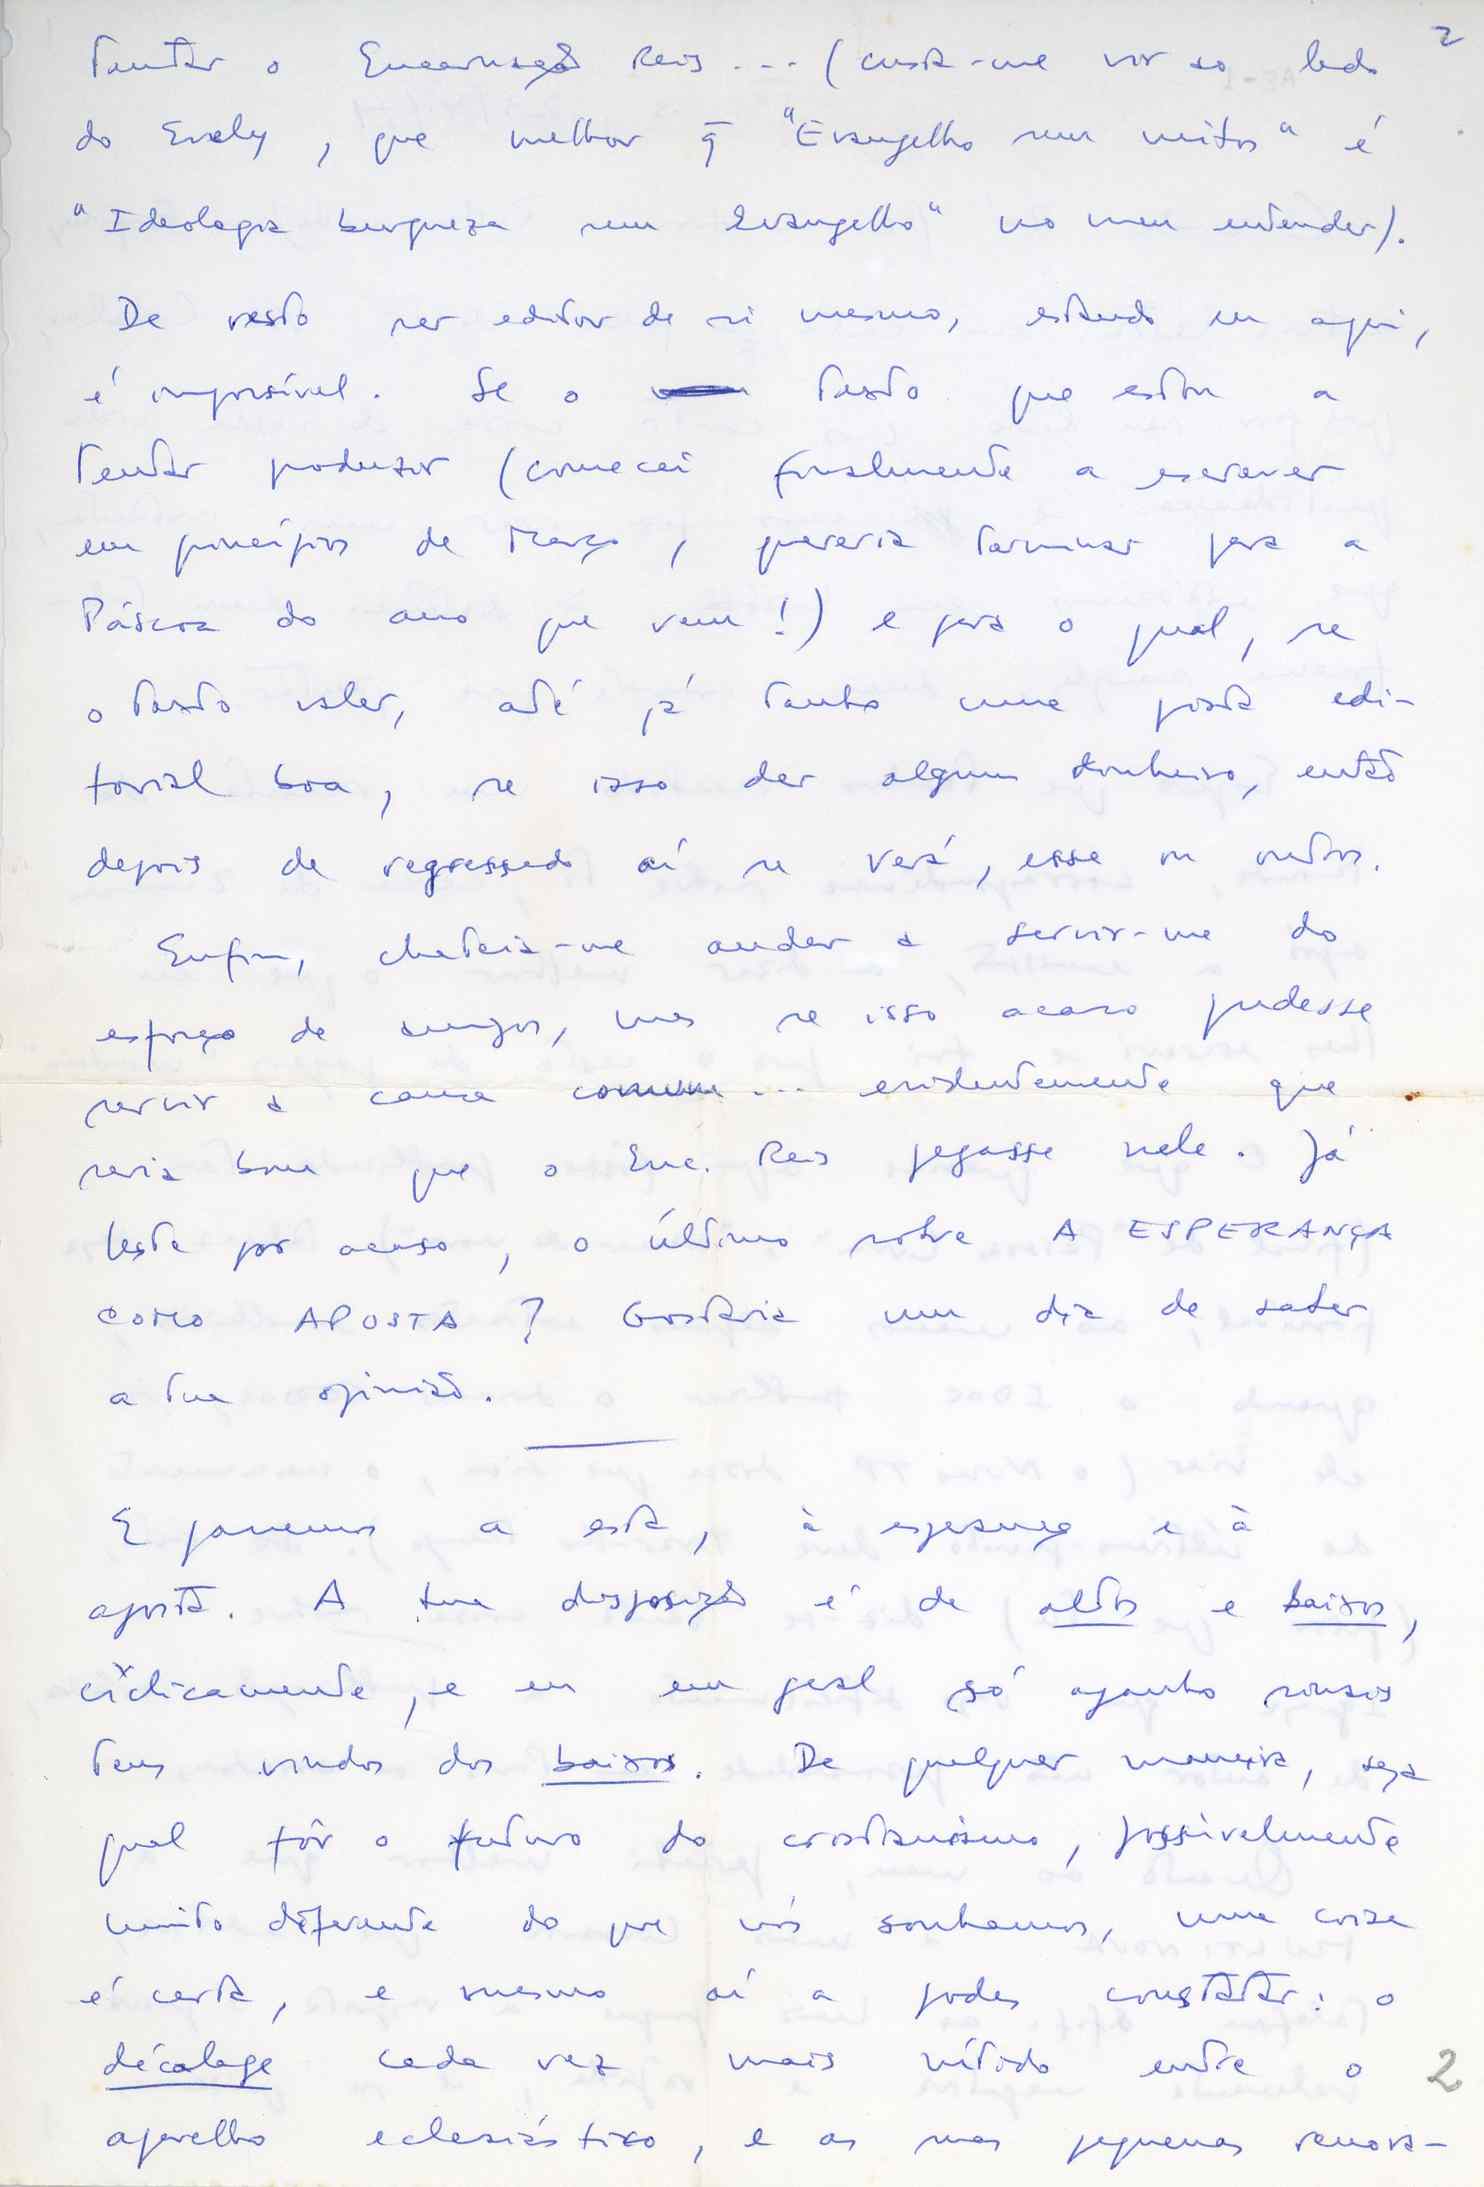 2
tentar o Encarnação Reis ... (custa-me vir ao lado
do Evely, que melhor q̄ "Evangelho sem mitos" é
"Ideologia burguesa sem evangelho" no meu entender).
De resto ser editor de si mesmo, estando eu aqui,
é impossível. Se o texto que estou a
tentar produzir (comecei finalmente a escrever
em princípios de Março, quereria terminar para a
Páscoa do ano que vem!) e para o qual, se
o texto valer, até já tenho uma pista edi-
torial boa, se isso der algum dinheiro, então
depois de regressado aí se verá, esse ou outros.
Enfim, chateia-me andar a servir-me do
esforço de amigos, mas se isso acaso pudesse
servir a causa comum ... evidentemente que
seria bom que o Enc. Reis pegasse nele. Já
leste por acaso, o último sobre A ESPERANÇA
COMO APOSTA? Gostaria um dia de saber
a tua opinião.
E passemos a esta, à esperança e à
aposta. A tua disposição é de altos e baixos,
ciclicamente, e eu em geral só apanho sinais
teus vindos dos baixos. De qualquer maneira, seja
qual fôr o futuro do cristianismo, possivelmente
muito diferente do que nós sonhamos, uma coisa
é certa, e mesmo aí a podes constatar: o
décalage cada vez mais nítido entre o
aparelho eclesiástico, e as suas pequenas renova-
2